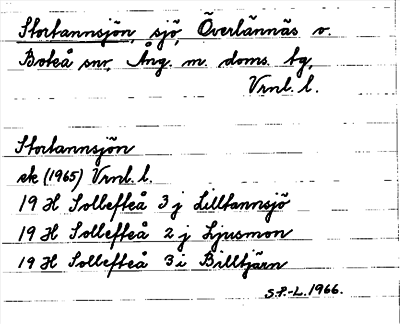 Stortannsjön, sjö, Överlännäs v.
Boteå snr, Ång. m. doms. bg,
Vrnl. l.
Stortannsjön
ek (1965) Vrnl. l.
19 H Sollefteå 3 j Lilltannsjö
19 H Sollefteå 2 j Ljusmon
19 H Sollefteå 3 i Billtjärn
S.P.-L. 1966.